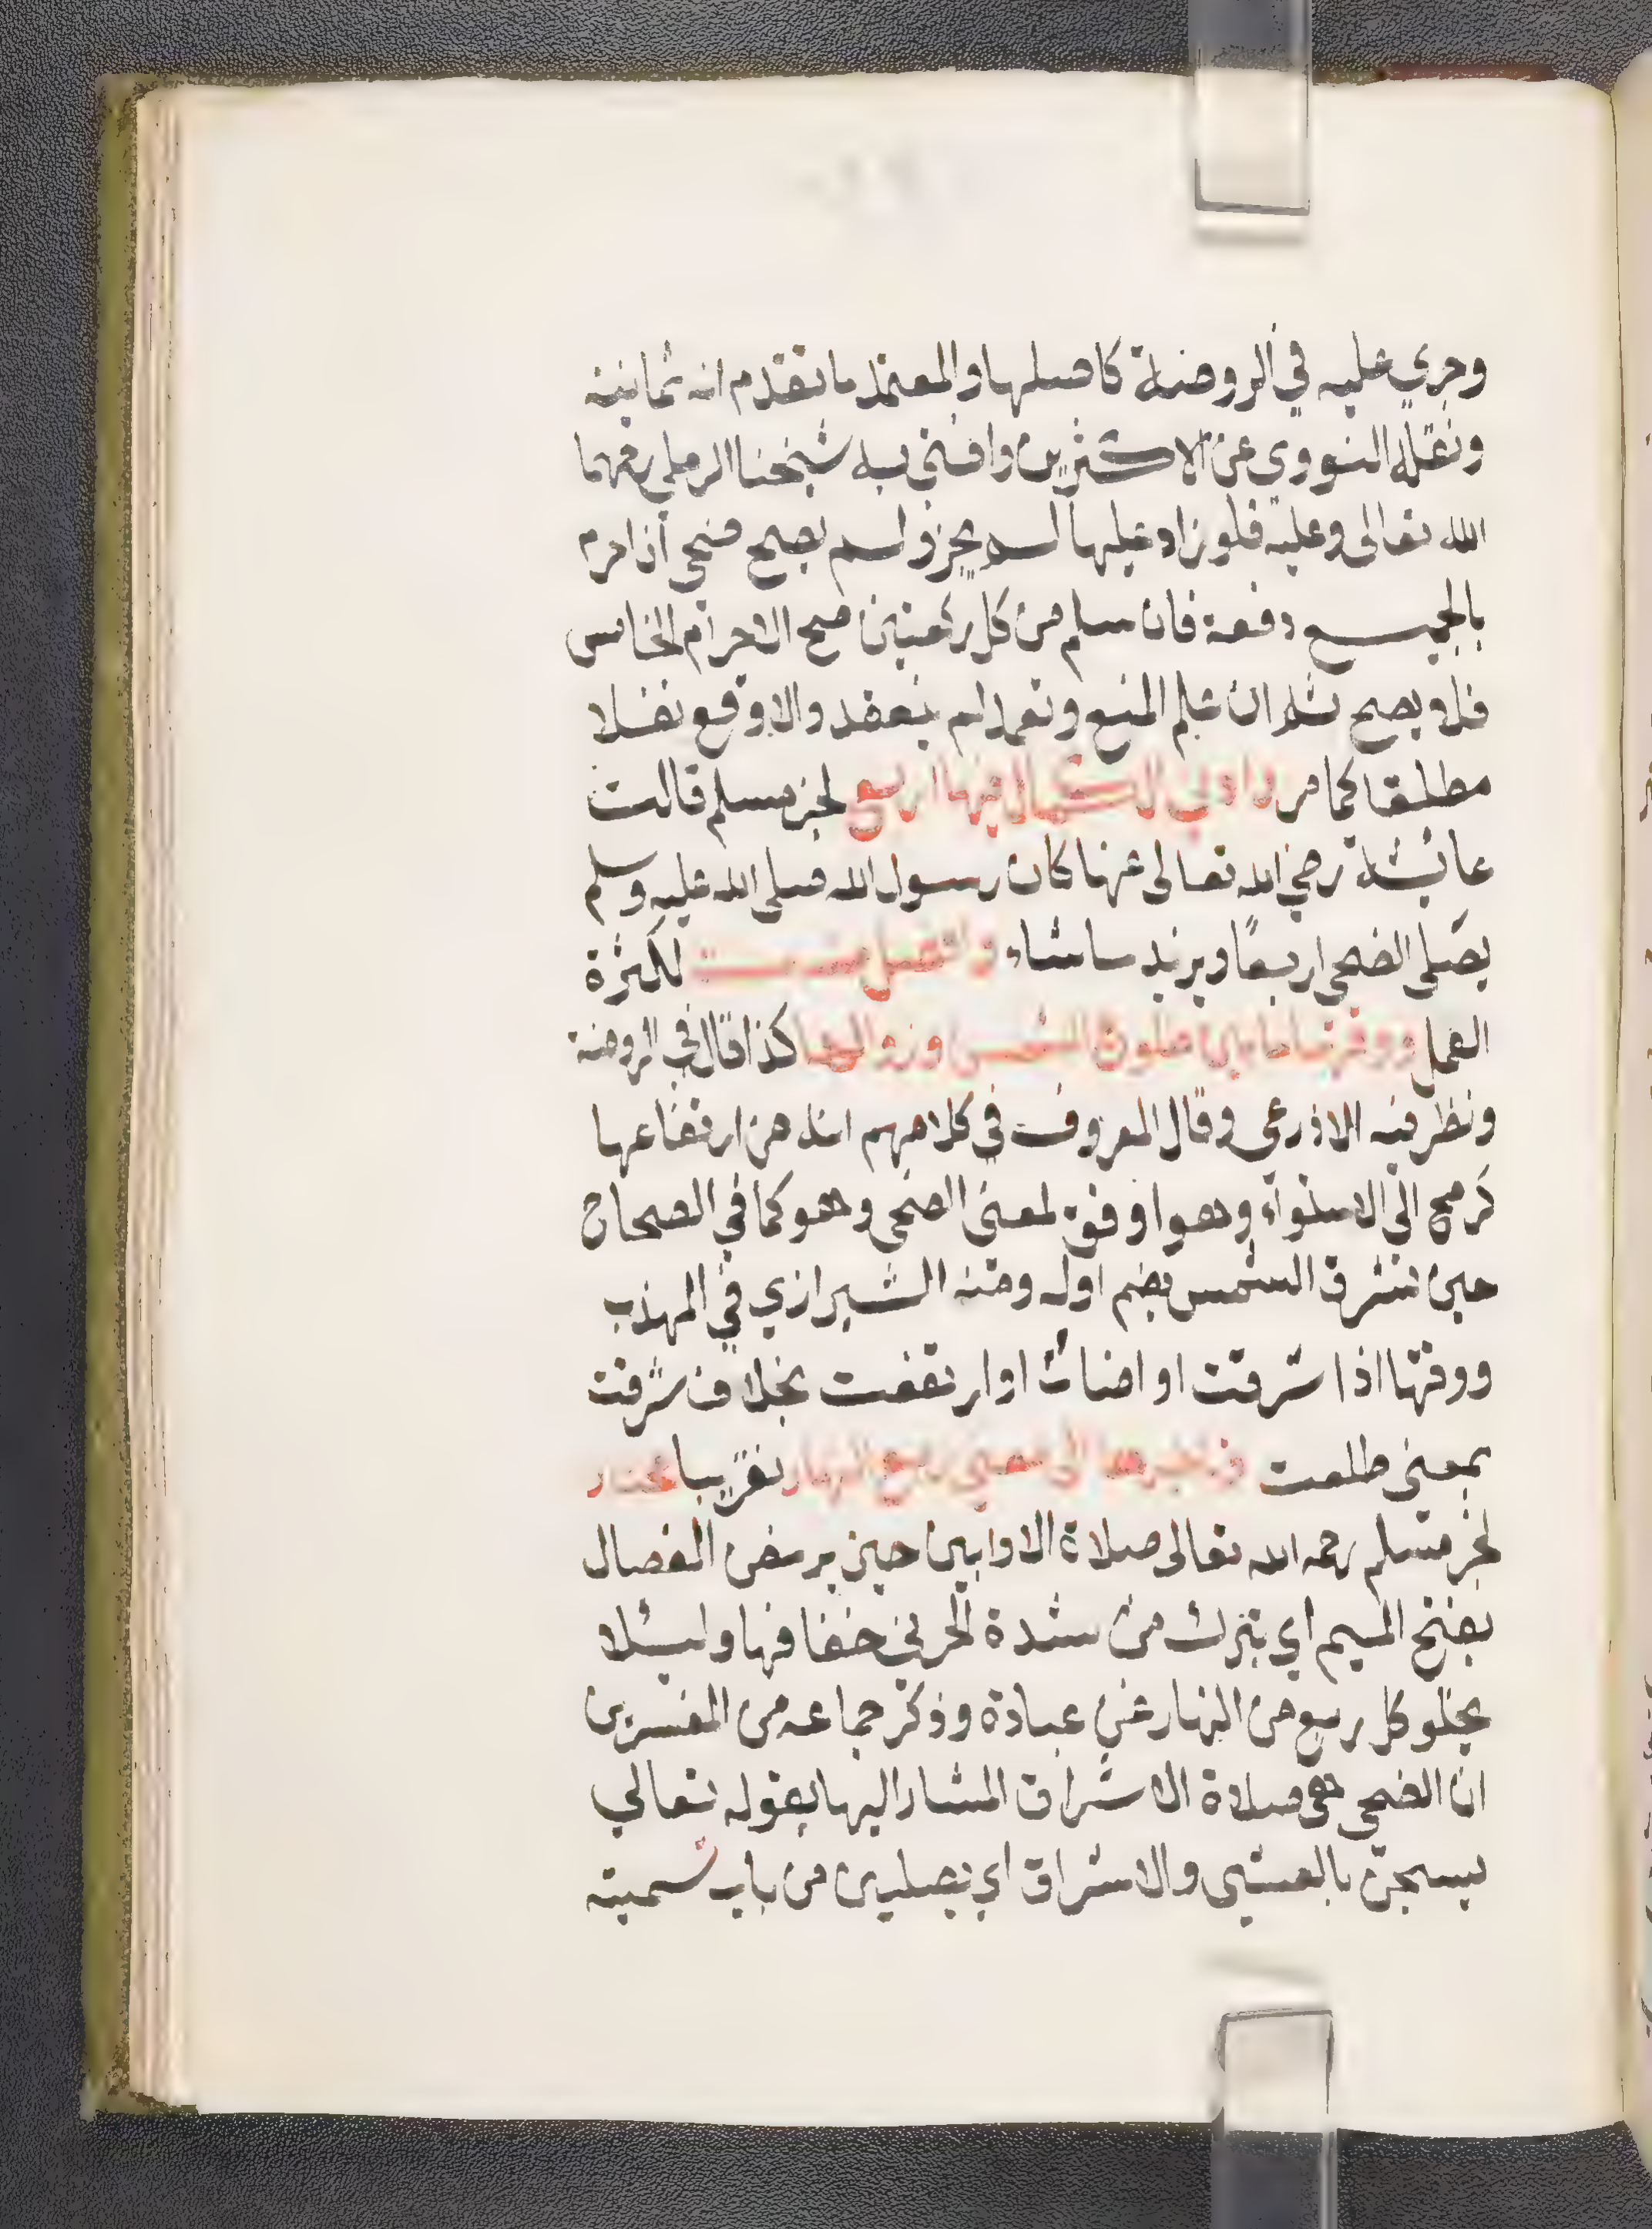 وجري عليه في الروضة كاصلها والمعتمد ما تقدم انه ثمانية
ونقله النووي عن الاكثرين وافتي به شيخنا الرملي رحمهما
الله تعالى وعليه فلو زاد عليها لم يجز ولم يصح ضحى ان احرم
بالجميع دفعة فان سلم من كل ركعتين صح الاحرام الخامس
فلا يصح ثم ان علم المنع وتعمد لم ينعقد والا وقع نفلا
مطلقا كما مر وادني الكمال فيها اربع لخبر مسلم قالت
عائشة رضي الله تعالى عنها كان رسول الله صلى الله عليه وسلم
يصلى الضحى اربعًا ويزيد ما شاء ست لكثرة
العمل ووقتها ما بين طلوع الشمس وزوالها كذا قال في الروضة
ونظر فيه الاذرعي وقال المعروف في كلامهم انه من ارتفاعها
كرمح الى الاستواء وهو اوفق لمعنى الضحى وهو كما في الصحاح
حين تشرق الشمس بضم اوله ومنه الشيرازي في المهذب
ووقتها اذا اشرقت او اضات او ارتفعت بخلاف شرقت
بمعنى طلعت وتاخيرها الى مضي ربع النهار تقريبا مختار
لخبر مسلم رحمه الله تعالى صلاة الاوابين حين ترمض الفصال
بفتح الميم اي تبرك من شدة الحر في خفافها وليئلا
يخلو كل ربع من النهار عن عبادة وذكر جماعه من المفسرين
ان الضحى هى صلاة الاشراق المشار اليها بقوله تعالي
يسبحن بالعشي والاشراق اي يصلين من باب تسميته